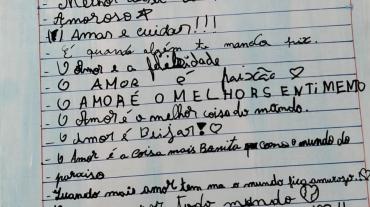 - Melhor
- Amoroso ☆
- (1) Amar e cuidar!!!
É quando alguém te manda
- O Amor e a felicidade
- O AMOR É paixão ♡
- O AMOR É O MELHOR SENTIMENTO
- O Amor e o melhor coisa do mundo.
- O Amor é Beijar! ♡
- O Amor é a coisa mais Bonita que como o mundo do
paraiso
- Quando mais amor tem ma o mundo fica amoroso..♡
todo mundo